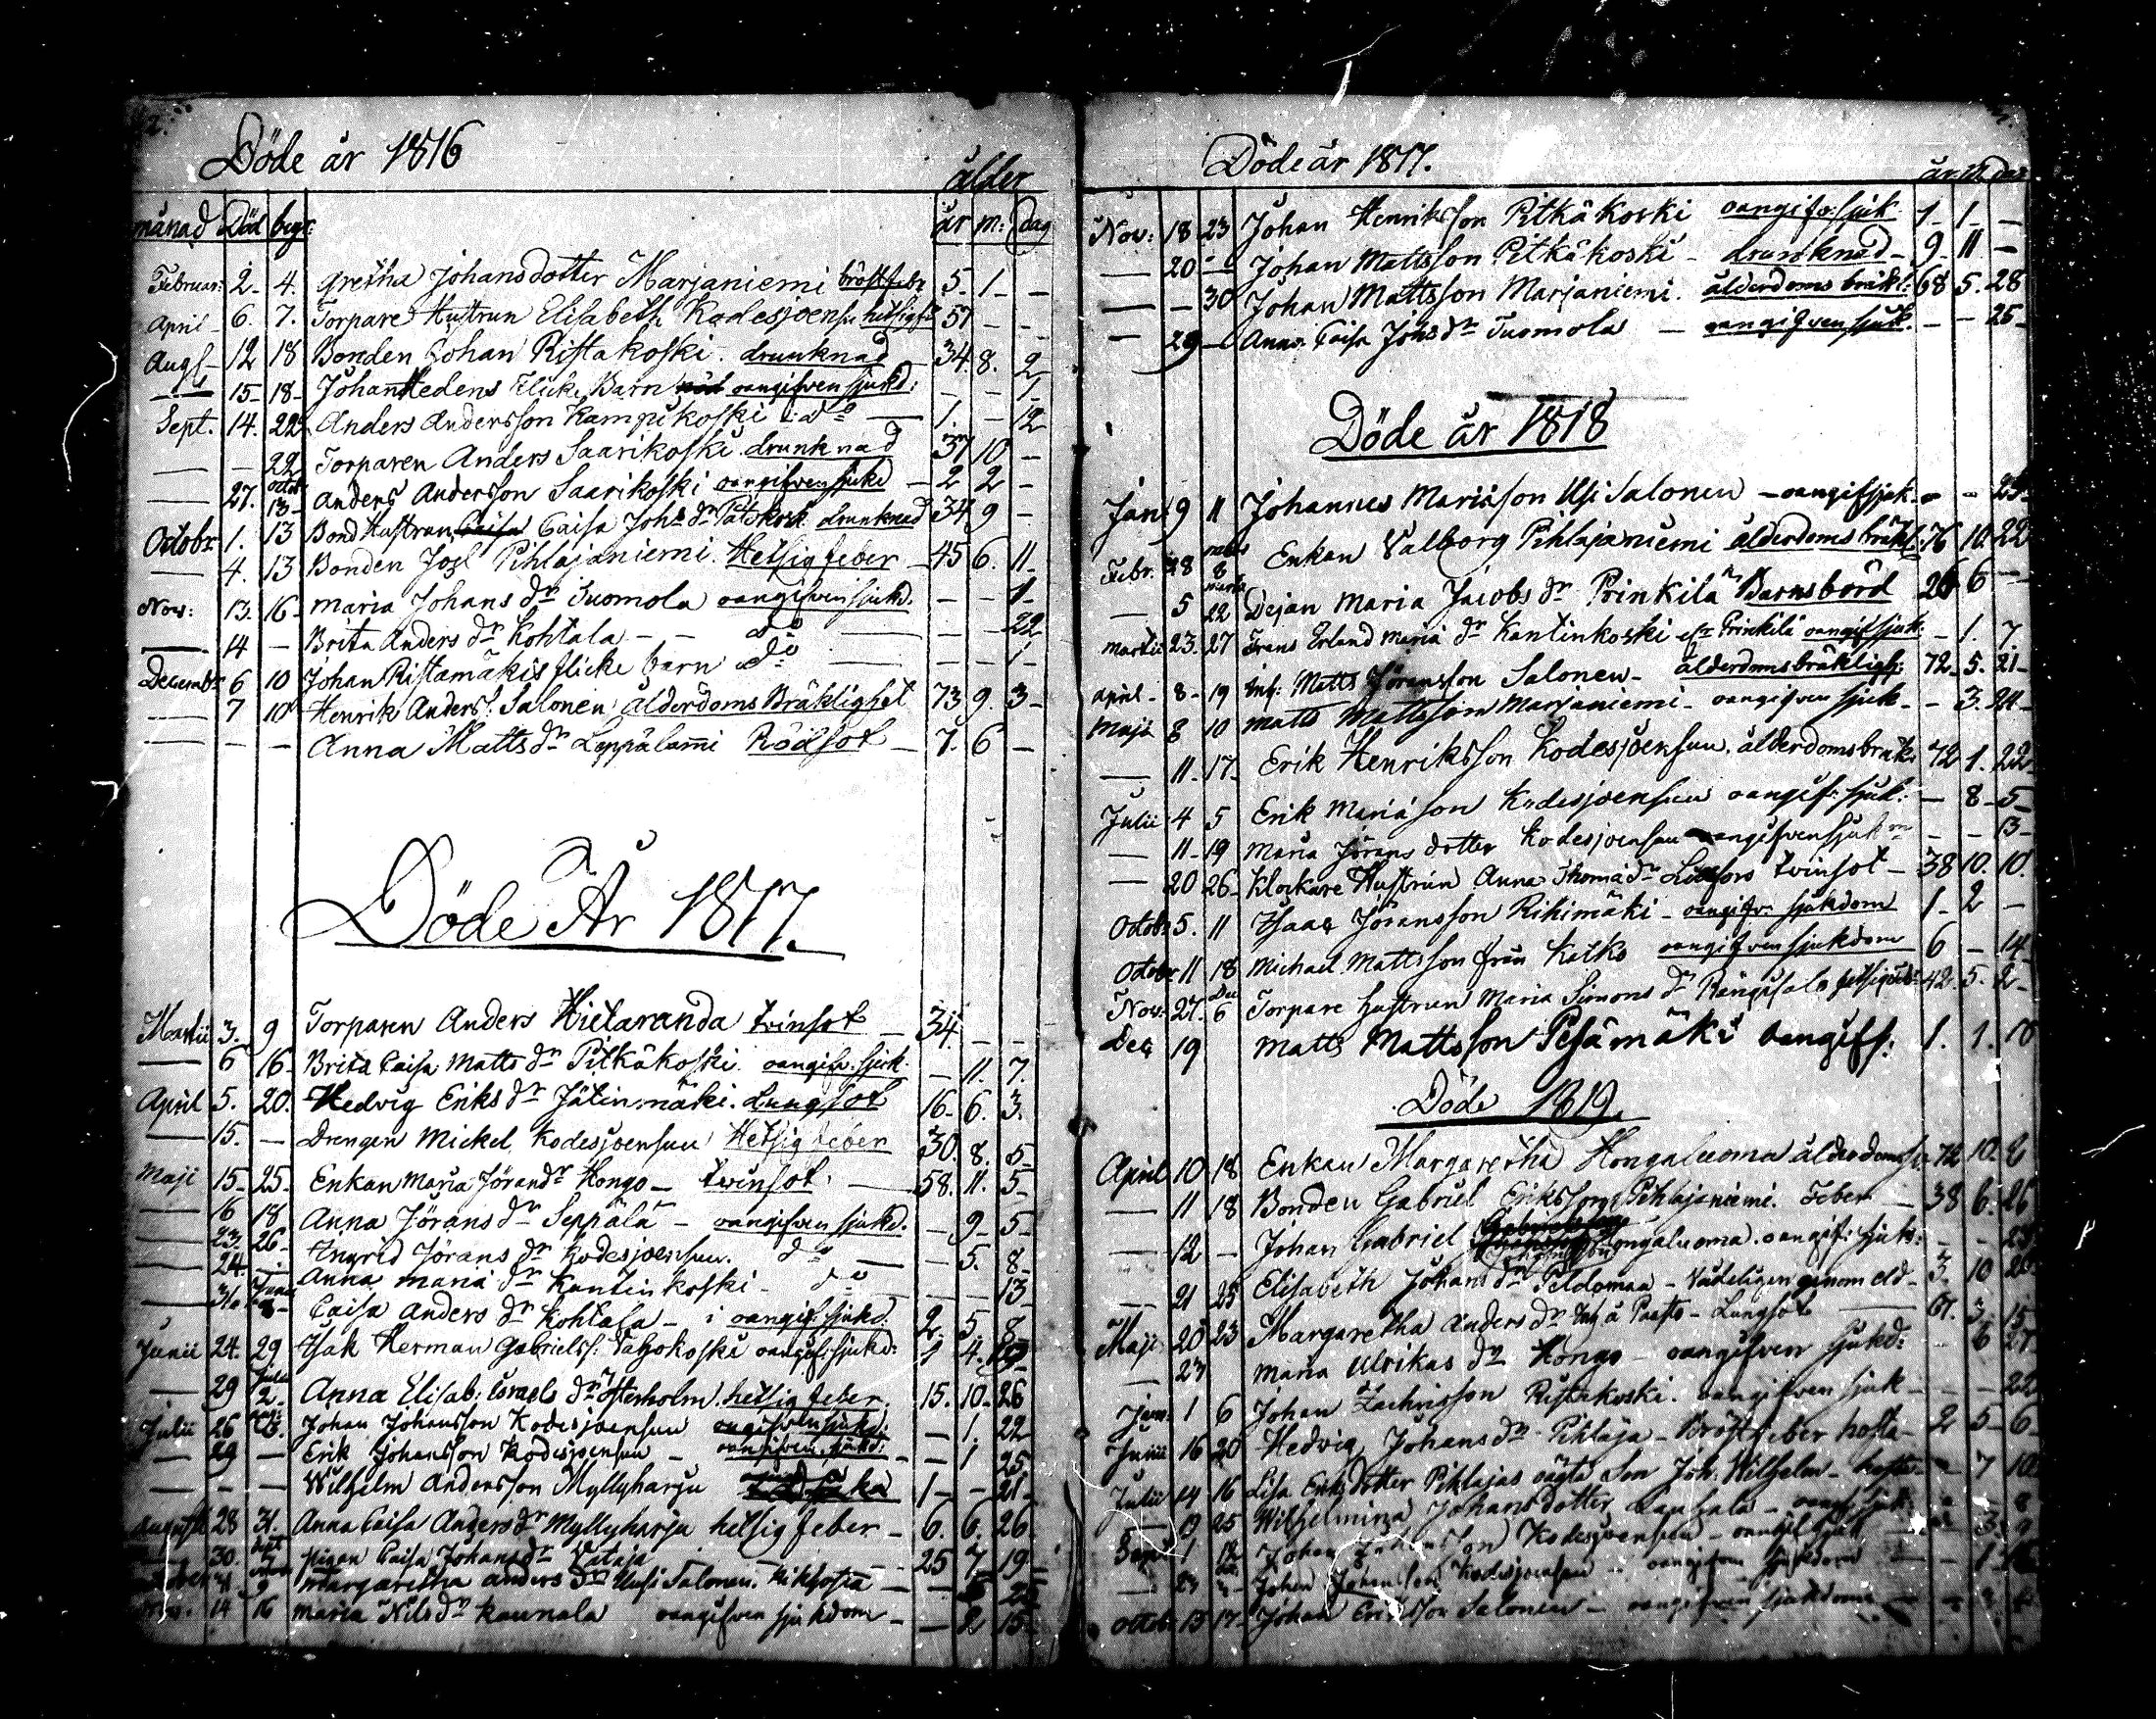 Döde år 1816
ålder
månad Död begr: år m: dag
Februar: 2 4. Gretha Johansdotter Marjaniemi bröstfebr 5. 1 -
April 6. 7. Torpare Hustrun Elisabeth Kodesjoensu hetsigf 57 - -
Augs 12 18 Bonden Johan Ristakoski. drunknad 34. 8. 2
- 15 18 Johan Hedens flicke Barn oangifven sjukd: - - 1
Sept. 14. 22 Anders Andersson Kampikoski do 1. - 12
- - 22 Torparen Anders Saarikoski. drunknad 37 10 -
- 27. octobr 13 Anders Andersson Saarikoski oangifven sjukd - 2 2 -
Octobr 1. 13 Bond Hustrun Caisa Johs dr drunknad 34 9 -
- 4. 13 Bonden Josf Pihlajaniemi. Hetsig feber - 45 6. 11
Nov: 13. 16 Maria Johans dr Tuomola oangifven sjukd. - - 1
- 14 - Brita Anders dr Kohtala - - do - - 22
Decembr 6 10 Johan Ristamäkis flicke barn do - - 1
- 7 10 Henrik Anders: Salonen Ålderdoms Bräklighet 73 9. 3
- - - Anna Matts dr Leppälami Rödsot - 7. 6 -
Döde År 1817.
Martii 3. 9 Torparen Anders Hietaranda tvinsot - 34. - -
- 6 16 Brita Caisa Matts dr Pitkäkoski. oangifv. sjuk. - 11. 7.
April 5. 20. Hedvig Eriks dr Jätinmäki. Lungsot 16. 6. 3.
- 15. - Drengen Mickel Kodesjoensuu Hetsig feber 30. 8. 5
Maji 15 25 Enkan Maria Jöran dr Hongo - tvinsot. 58. 11. 5
- 16 18 Anna Jörans dr Seppälä - oangifven sjukd. - 9 5
- 23 26 Ingrid Jörans dr Kodesjoensuu. do - 5. 8
- 24. - Anna Maria dr Kantinkoski - do - - 13
- 31. Junii Caisa Anders dr Kohtala - i oangif: sjukd. 2. 5 8
Junii 24. 29 Isak Herman Gabrielss. oangif: sjukd: 1 4.
- 29 Julii 2 Anna Elisab: Israels dr Österholm. hetsig feber. 15. 10. 26
Julii 26 Johan Johansson Kodesjoensuu oangifven sjukd. - 1. 22
- 29 - Erik Johansson Kodesjoensuu - oangifven sjukd: - 1 25
- - - Wilhelm Andersson Myllyharju 1 - 21
Augusti 28 31. Anna Caisa Anders dr Myllyharju hetsig feber - 6. 6. 26
30. Pigan Caisa Johans dr Lataja 25 7 19
9 Margaretha Anders dr Uusi Salonen. Kikhosta -
14 16 Maria Nils dr Kaunala oangifven sjukdom - - 2 15
Döde år 1817.
år M dag
Nov: 18 23 Johan Henriksson Pitkäkoski oangifv: sjuk 1 1 -
- 20 - Johan Mattsson Pitkäkoski - drunknad - 9 11 -
- - 30 Johan Mattsson Marjaniemi. ålderdoms bräkl: 68 5. 28
- 29 - Anna Caisa Johs dr Tuomola - oangifven sjuk. - - 25
Döde år 1818
Jan: 9 11 Johannes Mariason Usi Salonen - oangif sjuk - - 25
Febr. 28 8 Enkan Valborg Pihlajaniemi ålderdoms bräkl: 76 10. 22
- 5 martii 22 Dejan Maria Jacobs dr Prinkilä Barnsbörd 26 6 -
Martii 23. 27 Frans Erland Maria dr Kantinkoski efr Prinkilä oangif sjuk. - 1. 7
April 8 19 Inh: Matts Jöransson Salonen - ålderdoms bräkligh: 72 5. 21
Maji 8 10 Matts Mattsson Marjaniemi - oangifven sjuk - - 3. 24
- 11 17 Erik Henriksson Kodesjoensuu. ålderdoms bräk: 72 1. 22
Julii 4 5 Erik Maria son Kodesjoensuu oangif: sjuk: - 8 5
- 11 19 Maria Jörans dotter Kodesjoensuu oangifven sjukm - - 13
- 20 26 Klockare Hustrun Anna Thoma dr Lillfors tvinsot - 38 10. 10.
Octobr 5. 11 Isaac Jöransson Rihimäki - oangifv: sjukdom 1 2 -
Octobr 11 18 Michael Mattsson från Kalko oangifven sjukdom 6 - 14
Nov. 27. Dec 6 Torpare hustrun Maria Simons dr Rängisala hetsig feb 42 5. 2
Dec 19 Matts Mattsson Pesämäki oangifs: 1. 1. 10
Döde 1819.
April 10 18 Enkan Margaretha Hongaluoma ålderdoms 72 10. 2
- 11 18 Bonden Gabriel Eriksson Pihlajaniemi. Feber - 38 6. 26
- 12 - Johan Gabriel Hongaluoma. oangif: sjuk: - - 25
- 21 25 Elisabeth Johans dr Peldomaa - Vådeligen genom eld - 3. 10 20
Maji 20 23 Margaretha Anders dr Inh: å Paasto - Lungsot 67. 3. 15
- 23 Maria Ulrikas dr Hongo - oangifven sjukd: - 6 27
Jun: 1 6 Johan Zachrisson Ristakoski. oangifven sjuk - - - 22
Junii 16 20 Hedvig Johans dr Pihlaja - Bröstfeber hosta - 2 5 6
Julii 14 16 Lisa Eriks dotter Pihlajas oägta Son Joh: Wilhelm - hosta - 7 10
- 19 25 Wilhelmina Johansdotter - oangif sjuk -
Sept 1 12 Johan Johansson Kodesjoensuu - oangif sjuk
- 27 Johan Johansson Kodesjoensuu - oangifven sjukdom
Octobr 15 17 Johan Ericsson Salonen - oangifven sjukdom